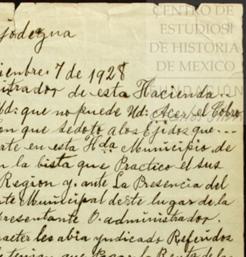 CENTRO DE
ESTUDIOS
DE HISTORIA
DE MEXICO
iembre. 7 de 1928
trador de esta Hacienda
Ud: que no puede Ud: Acer el Cobro
en que se doto a los Ejidos que
arte en esta Hda Municipio de
n la bista que Practico el sus
Region y ante La Presencia del
nte Municipal de este lugar de la
presentante O. administrador.
acter les abia yndicado Referidos
tenian que Pagar la Renta de la